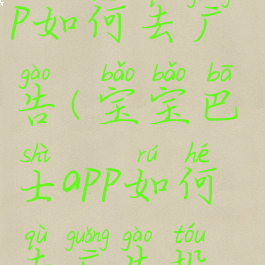 p如何去广
gào bǎo bǎo bā
告(宝宝巴
shì rú hé
士app如何
qù guǎng gào tóu